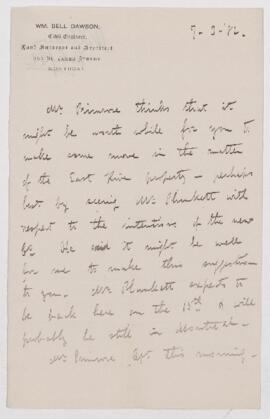 WM. BELL DAWSON,
Civil Engineer,
Land Surveyor and Architect
ST. JAMES STREET
MONTREAL
Mr. Primrose thinks that it
might be worth while for you to
make some move in the matter
of the East River property – perhaps
best by seeing Mr. Plunkett with
respect to the intentions of the new
Co. He said it might be well
for me to make this suggestion
to you. Mr. Plunkett expects to
be back here on the 15th & will
probably be still in Montreal.
Mr. Primrose left this morning.